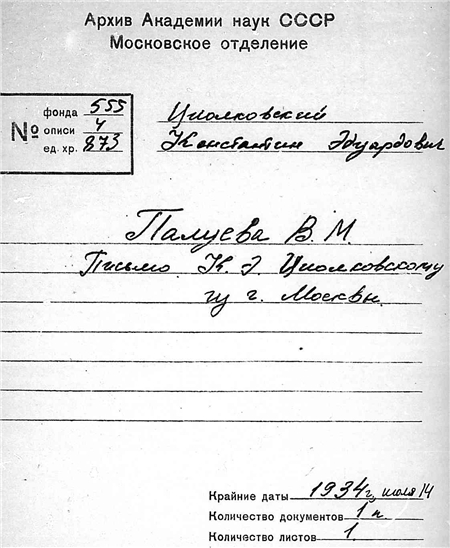 Архив Академии наук СССР
Московское отделение
№
фонда 555
описи 4
ед. хр. 873
Циолковский
Константин Эдуардович
Палуева В. М.
Письмо К. Э Циолковскому
из г. Москвы.
Крайние даты 1934 г, июля 14
Количество документов 1 п.
Количество листов 1.